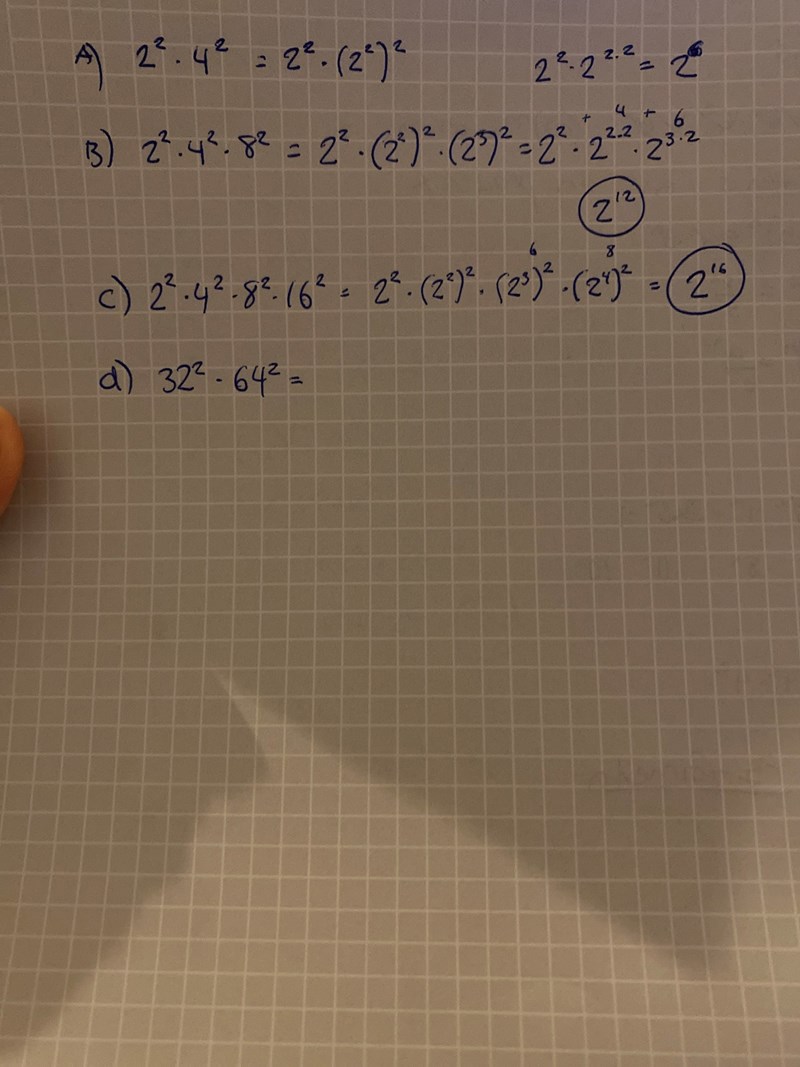 A) 2² · 4² = 2² · (2²)² 2² · 2²·² = 2⁶
B) 2² · 4² · 8² = 2² · (2²)² · (2³)² = 2² · 2²·² · 2³·²
+ 4 + 6
2¹²
6 8
c) 2² · 4² · 8² · 16² = 2² · (2²)² · (2³)² · (2⁴)² = 2¹⁶
d) 32² · 64² =